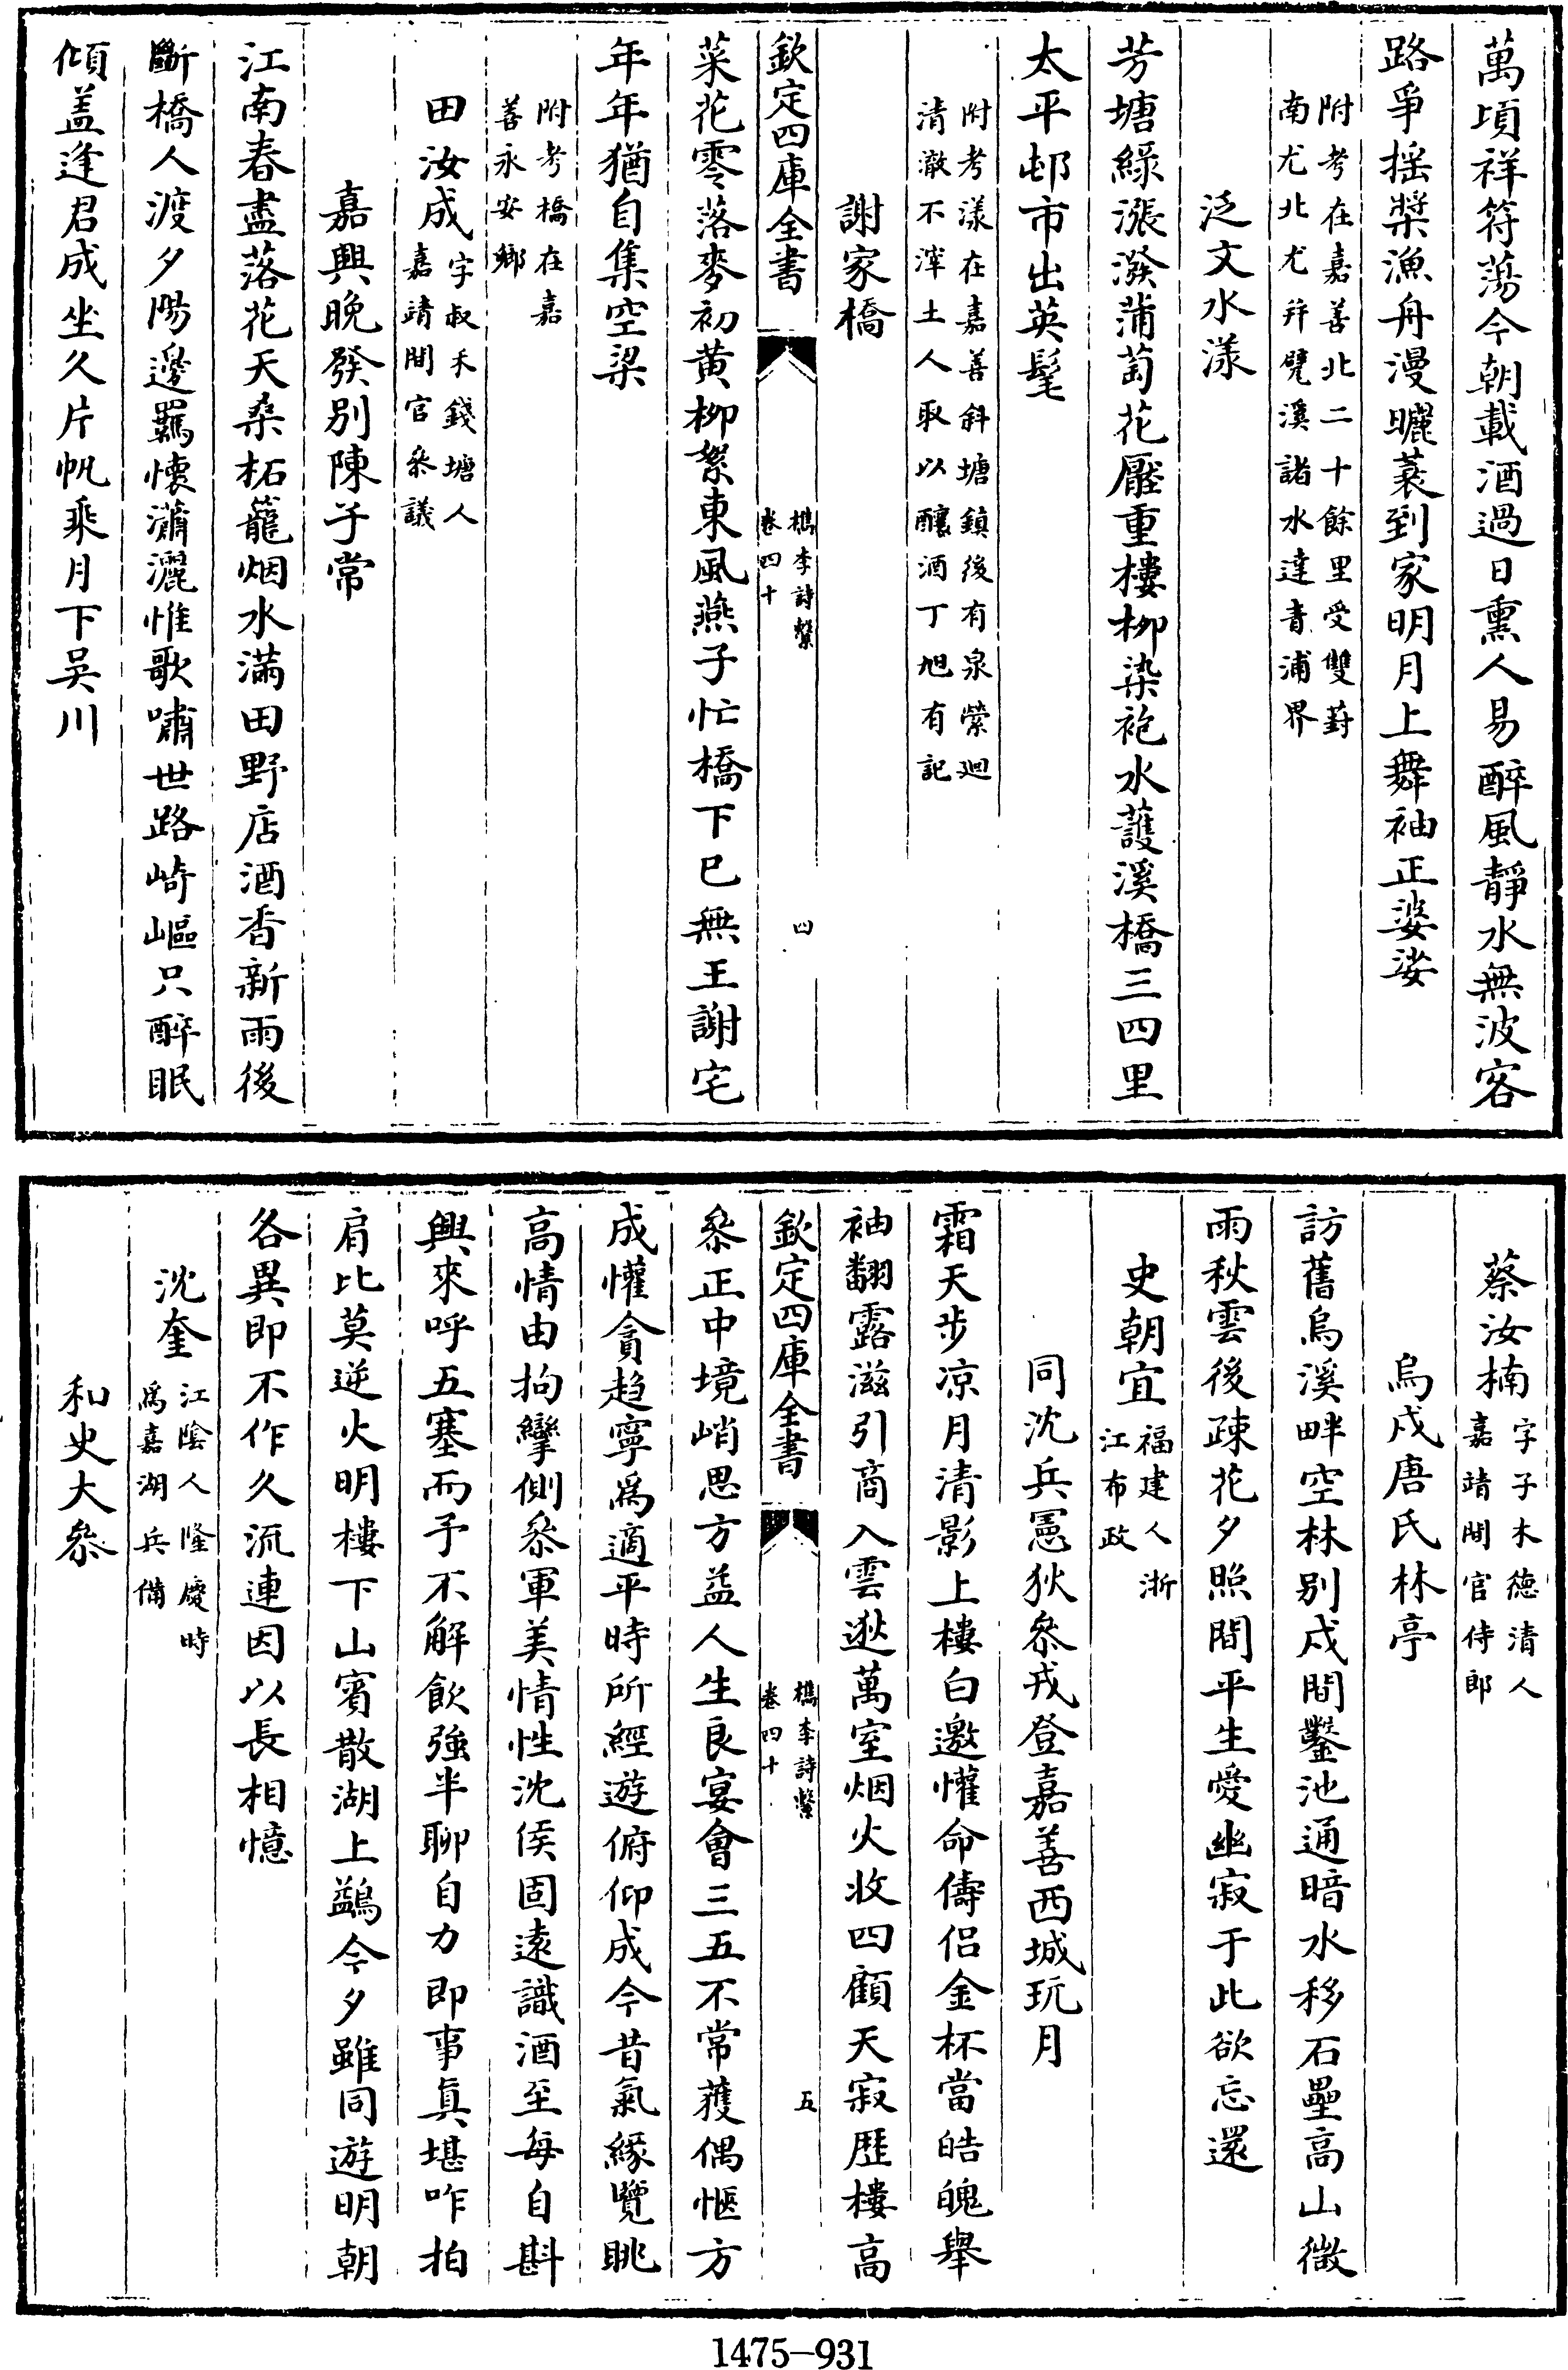 萬頃祥符蕩今朝載酒過日熏人易醉風靜水無波客
路爭搖槳漁舟漫曬蓑到家明月上舞袖正婆娑
附考在嘉善北二十餘里受雙葑
南尤北尤并甓溪諸水達青浦界
泛文水漾
芳塘綠漲潑蒲萄花壓重樓柳染袍水護溪橋三四里
太平邨市出英髦
附考漾在嘉善斜塘鎮後有泉縈迴
清澈不滓土人取以釀酒丁旭有記
謝家橋
欽定四庫全書
檇李詩繫
卷四十
四
菜花零落麥初黄柳絮東風燕子忙橋下已無王謝宅
年年猶自集空梁
附考橋在嘉
善永安鄉
田汝成
字叔禾錢塘人
嘉靖間官叅議
嘉興晚發别陳子常
江南春盡落花天桑柘籠烟水滿田野店酒香新雨後
斷橋人渡夕陽邊羈懷瀟灑惟歌嘯世路崎嶇只醉眠
傾盖逢君成坐久片帆乘月下吳川
蔡汝楠
字子木德清人
嘉靖間官侍郎
烏戍唐氏林亭
訪舊烏溪畔空林别戍間鑿池通暗水移石壘高山微
雨秋雲後疎花夕照間平生愛幽寂于此欲忘還
史朝宜
福建人浙
江布政
同沈兵憲狄叅戎登嘉善西城玩月
霜天步凉月清影上樓白邀懽命儔侣金杯當皓魄舉
袖翻露滋引商入雲逖萬室烟火收四顧天寂歷樓高
欽定四庫全書
檇李詩繫
卷四十
五
叅正中境峭思方益人生良宴會三五不常獲偶愜方
成懽貪趋寧爲適平時所經遊俯仰成今昔氣緣覽眺
高情由拘攣側叅軍美情性沈侯固遠識酒至每自斟
興來呼五塞而予不解飲強半聊自力即事真堪咋拍
肩比莫逆火明樓下山賓散湖上鷁今夕雖同遊明朝
各異即不作久流連因以長相憶
沈奎
江陰人隆慶時
爲嘉湖兵備
和史大叅
1475-931